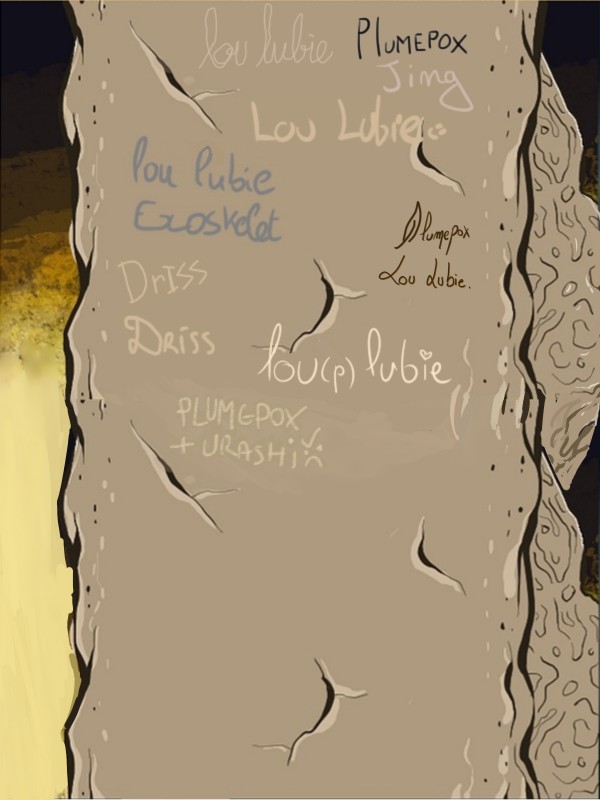 lou lubie
PLUMEPOX
Jing
Lou Lubie
lou lubie
Exoskelet
Plumepox
Lou Lubie.
DrISS
Driss
lou(p) lubie
PLUMEPOX
+ URASHi